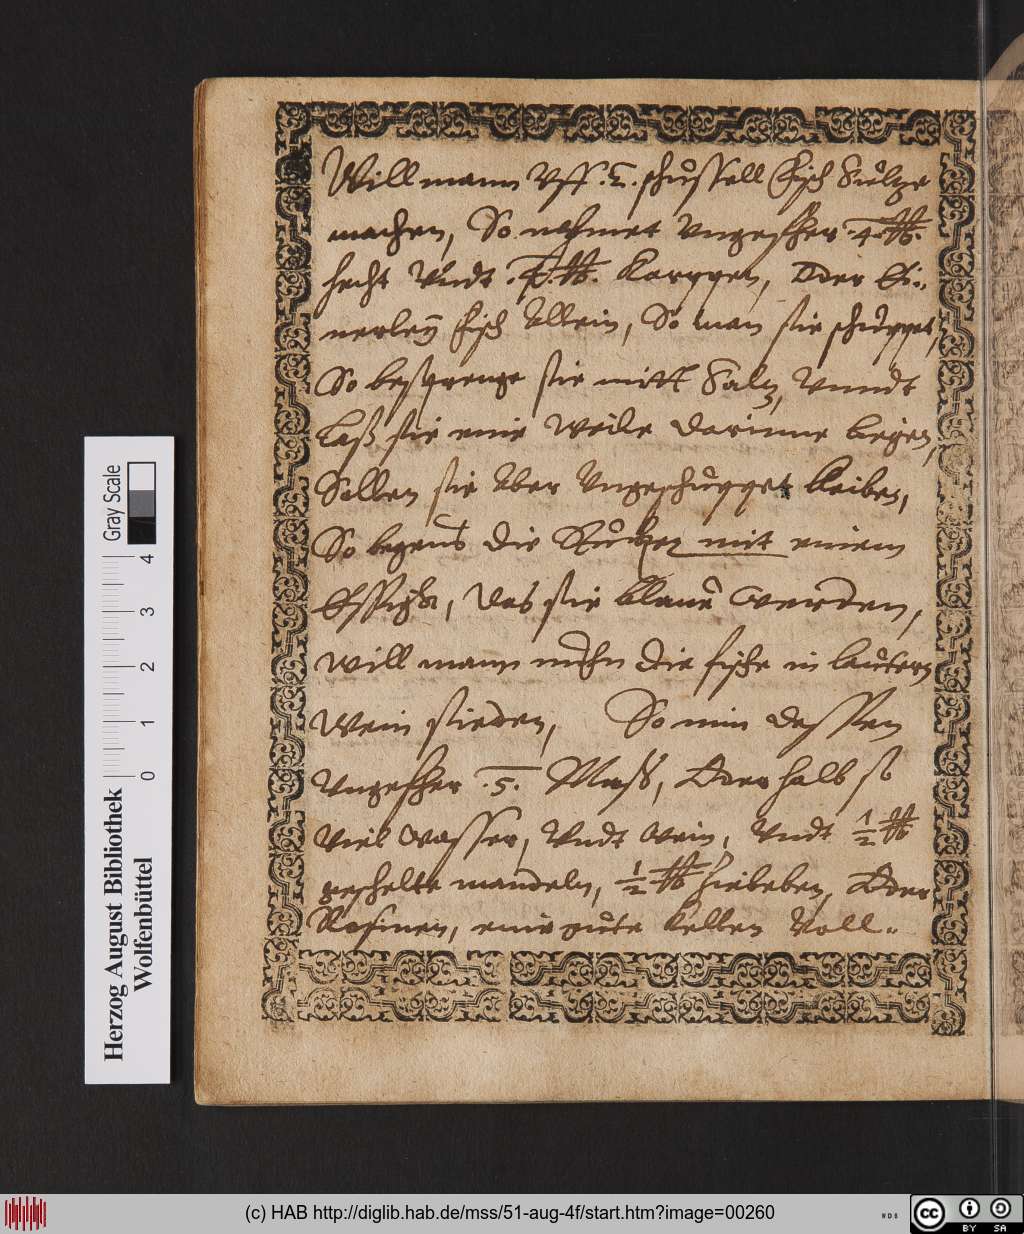 Will mann Vff .2. schüssell Fisch Sültze
machen, So nehmet Vngefeher .4. ℔.
hecht Vndt .4. ℔. Karppen, Oder Ei-
nerleÿ Fisch Allein, So man sie schüppet,
So besprenge sie mitt Saltz, Vnndt
laß sie eine Weile darinne liegen,
Sollen sie Aber Vngeschüppet bleiben,
So begeus die Rücken mit einem
Essigk, das sie blaue werden,
Will mann nuhn die fische in lautern
Wein sieden, So nim dessen
Vngefeher .5. Maß, Oder halb so
Viel Wasser, Vndt Wein, Vndt ½ ℔
geschelte mandeln, ½ ℔ Ziebeben, Oder
Rosinen, eine gute kellen Voll
Herzog August Bibliothek
Wolfenbüttel
Gray Scale
0 1 2 3 4
(c) HAB http://diglib.hab.de/mss/51-aug-4f/start.htm?image=00260
WDB
cc BY SA